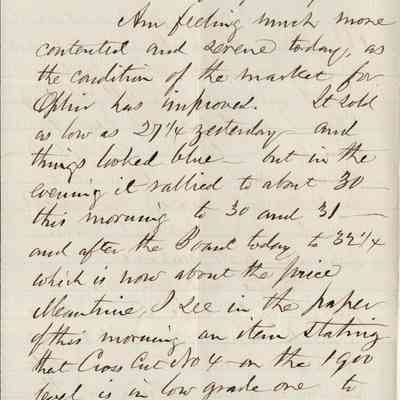 Am feeling much more
contented and serene today, as
the condition of the market for
Ophir has improved. It sold
as low as 27 1/4 yesterday - and
things looked blue - but in the
evening it rallied to about 30 -
this morning to 30 and 31 -
and after the Board today to 32 1/4
which is now about the price
Meantime, I see in the paper
of this morning an item stating
that Cross Cut No 4 - on the 1900
level is in low grade ore to